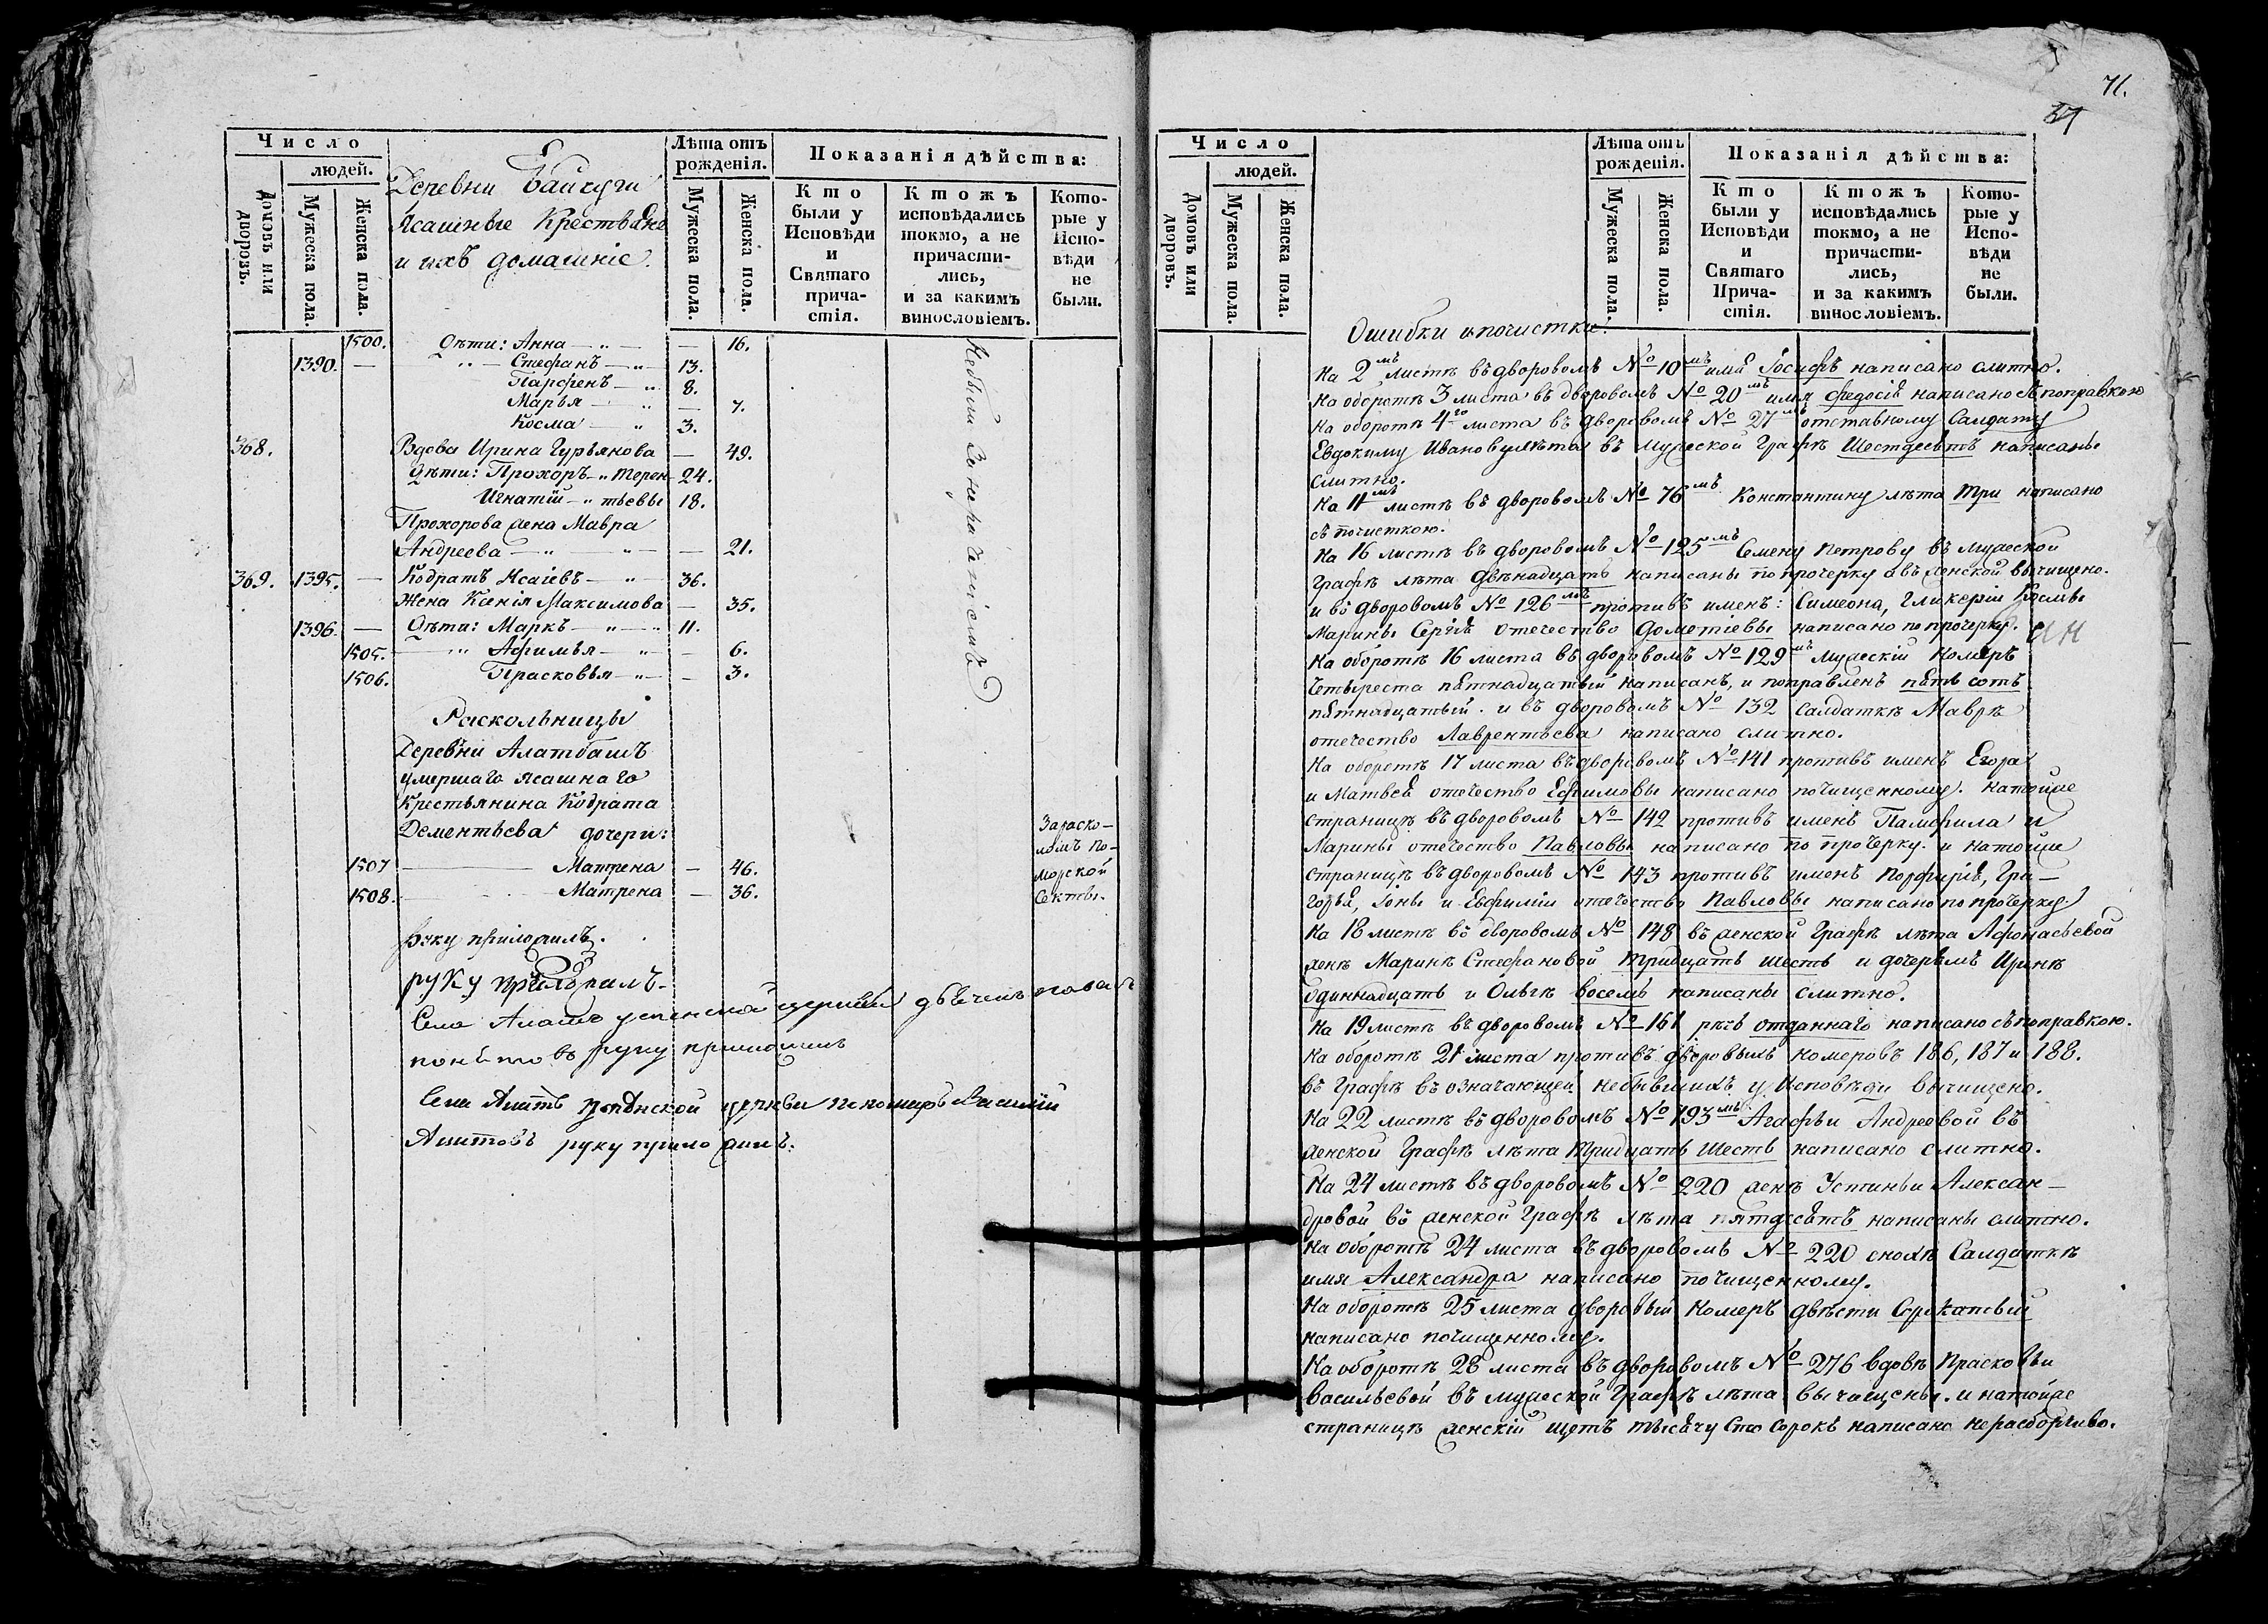 Число
людей.
Домовъ или дворовъ.
Мужеска пола.
Женска пола.
Деревни Байчуги
Ясашные Крестьяне
и ихъ домашніе.
Лѣта отъ рожденія.
Мужеска пола.
Женска пола.
Показанія дѣйства:
Кто были у Исповѣди и Святаго причастія.
Ктожъ исповѣдались токмо, а не причастились, и за какимъ винословіемъ.
Которые у Исповѣди не были.
1500. Дѣти: Анна — 16.
1390. — Стефанъ — 13.
Парфенъ — 8.
Марья — — 7.
Косма — 3.
368. Вдова Ирина Гурьянова — 49.
Дѣти: Прохоръ Терен- 24.
Игнатій тьевы 18.
Прохорова жена Мавра
Андреева — — 21.
369. 1395. — Кодратъ Исаіевъ — 36.
Жена Ксенія Максимова — 35.
1396. — Дѣти: Маркъ — 11.
1505. Афимья — — 6.
1506. Прасковья — — 3.
Небыли За нерачѣніемъ
Раскольницы
Деревни Алатбашъ
умершаго ясашнаго
Крестьянина Кодрата
Дементьева дочери:
1507 — Матрена — 46.
1508. — Матрена — 36.
За раско-
ломъ По-
морской
Секты.
руку приложилъ.
руку приложилъ.
Села успенской церкви
руку приложилъ
Села церкви пономарь Василій
руку приложилъ.
71.
Число
людей.
Домовъ или дворовъ.
Мужеска пола.
Женска пола.
Лѣта отъ рожденія.
Мужеска пола.
Женска пола.
Показанія дѣйства:
Кто были у Исповѣди и Святаго Причастія.
Ктожъ исповѣдались токмо, а не причастились, и за какимъ винословіемъ.
Которые у Исповѣди не были.
Ошибки и почистки.
На 2мъ листѣ въ дворовомъ № 10мъ имя Іосифъ написано слитно.
На оборотѣ 3 листа въ дворовомъ № 20мъ имя Федосія написано съ поправкою
На оборотѣ 4го листа въ дворовомъ № 27мъ отставному Салдату
Евдокиму Иванову лѣта въ мужеской Графѣ Шестдесятъ написаны
слитно.
На 11мъ листѣ въ дворовомъ № 76мъ Константину лѣта три написано
съ почисткою.
На 16 листѣ въ дворовомъ № 125мъ Семену Петрову въ мужеской
Графѣ лѣта двѣнадцать написаны по прочерку а въ женской вычищено.
и въ дворовомъ № 126мъ противъ именъ: Симеона, Гликеріи Космы
Марины Сергія отечество Дометіевы написано по прочерку.
На оборотѣ 16 листа въ дворовомъ № 129мъ мужескій номеръ
четыреста пятнадцатый написанъ, и поправленъ пять сотъ
пятнадцатый. и въ дворовомъ № 132 салдаткѣ Маврѣ
отечество Лаврентьева написано слитно.
На оборотѣ 17 листа въ дворовомъ № 141 противъ именъ Егора
и Матвея отечество Ефимовы написано почищенному. На тойже
страницѣ въ дворовомъ № 142 противъ именъ Памфила и
Марины отечество Павловы написано по прочерку. и на тойже
страницѣ въ дворовомъ № 143 противъ именъ Порфирія, Гри-
горья, Іоны и Евфиміи отечество Павловы написано по прочерку
На 18 листѣ въ дворовомъ № 148 въ женской Графѣ лѣта Афонасьевой
женѣ Маринѣ Стефановой тридцать шесть и дочерямъ Иринѣ
одиннадцать и Ольгѣ восемь написаны слитно.
На 19 листѣ въ дворовомъ № 161 рѣчь отданнаго написано съ поправкою.
На оборотѣ 21 листа противъ дворовыхъ номеровъ 186, 187 и 188.
въ Графѣ въ означающей небывшихъ у Исповѣди вычищено.
На 22 листѣ въ дворовомъ № 193мъ Агафьи Андреевой въ
женской Графѣ лѣта тридцать шесть написано слитно.
На 24 листѣ въ дворовомъ № 220 женѣ Устиньи Алексан-
дровой въ женской Графѣ лѣта пятдесятъ написаны слитно.
На оборотѣ 24 листа въ дворовомъ № 220 снохѣ Салдаткѣ
имя Александра написано почищенному.
На оборотѣ 25 листа дворовый номеръ двѣсти Сороковый
написано почищенному.
На оборотѣ 28 листа въ дворовомъ № 276 вдовѣ Прасковьи
Васильевой въ мужеской Графѣ лѣта вычищены. и на тойже
страницѣ женскій щетъ тысячу сто сорокъ написано неразборчиво.